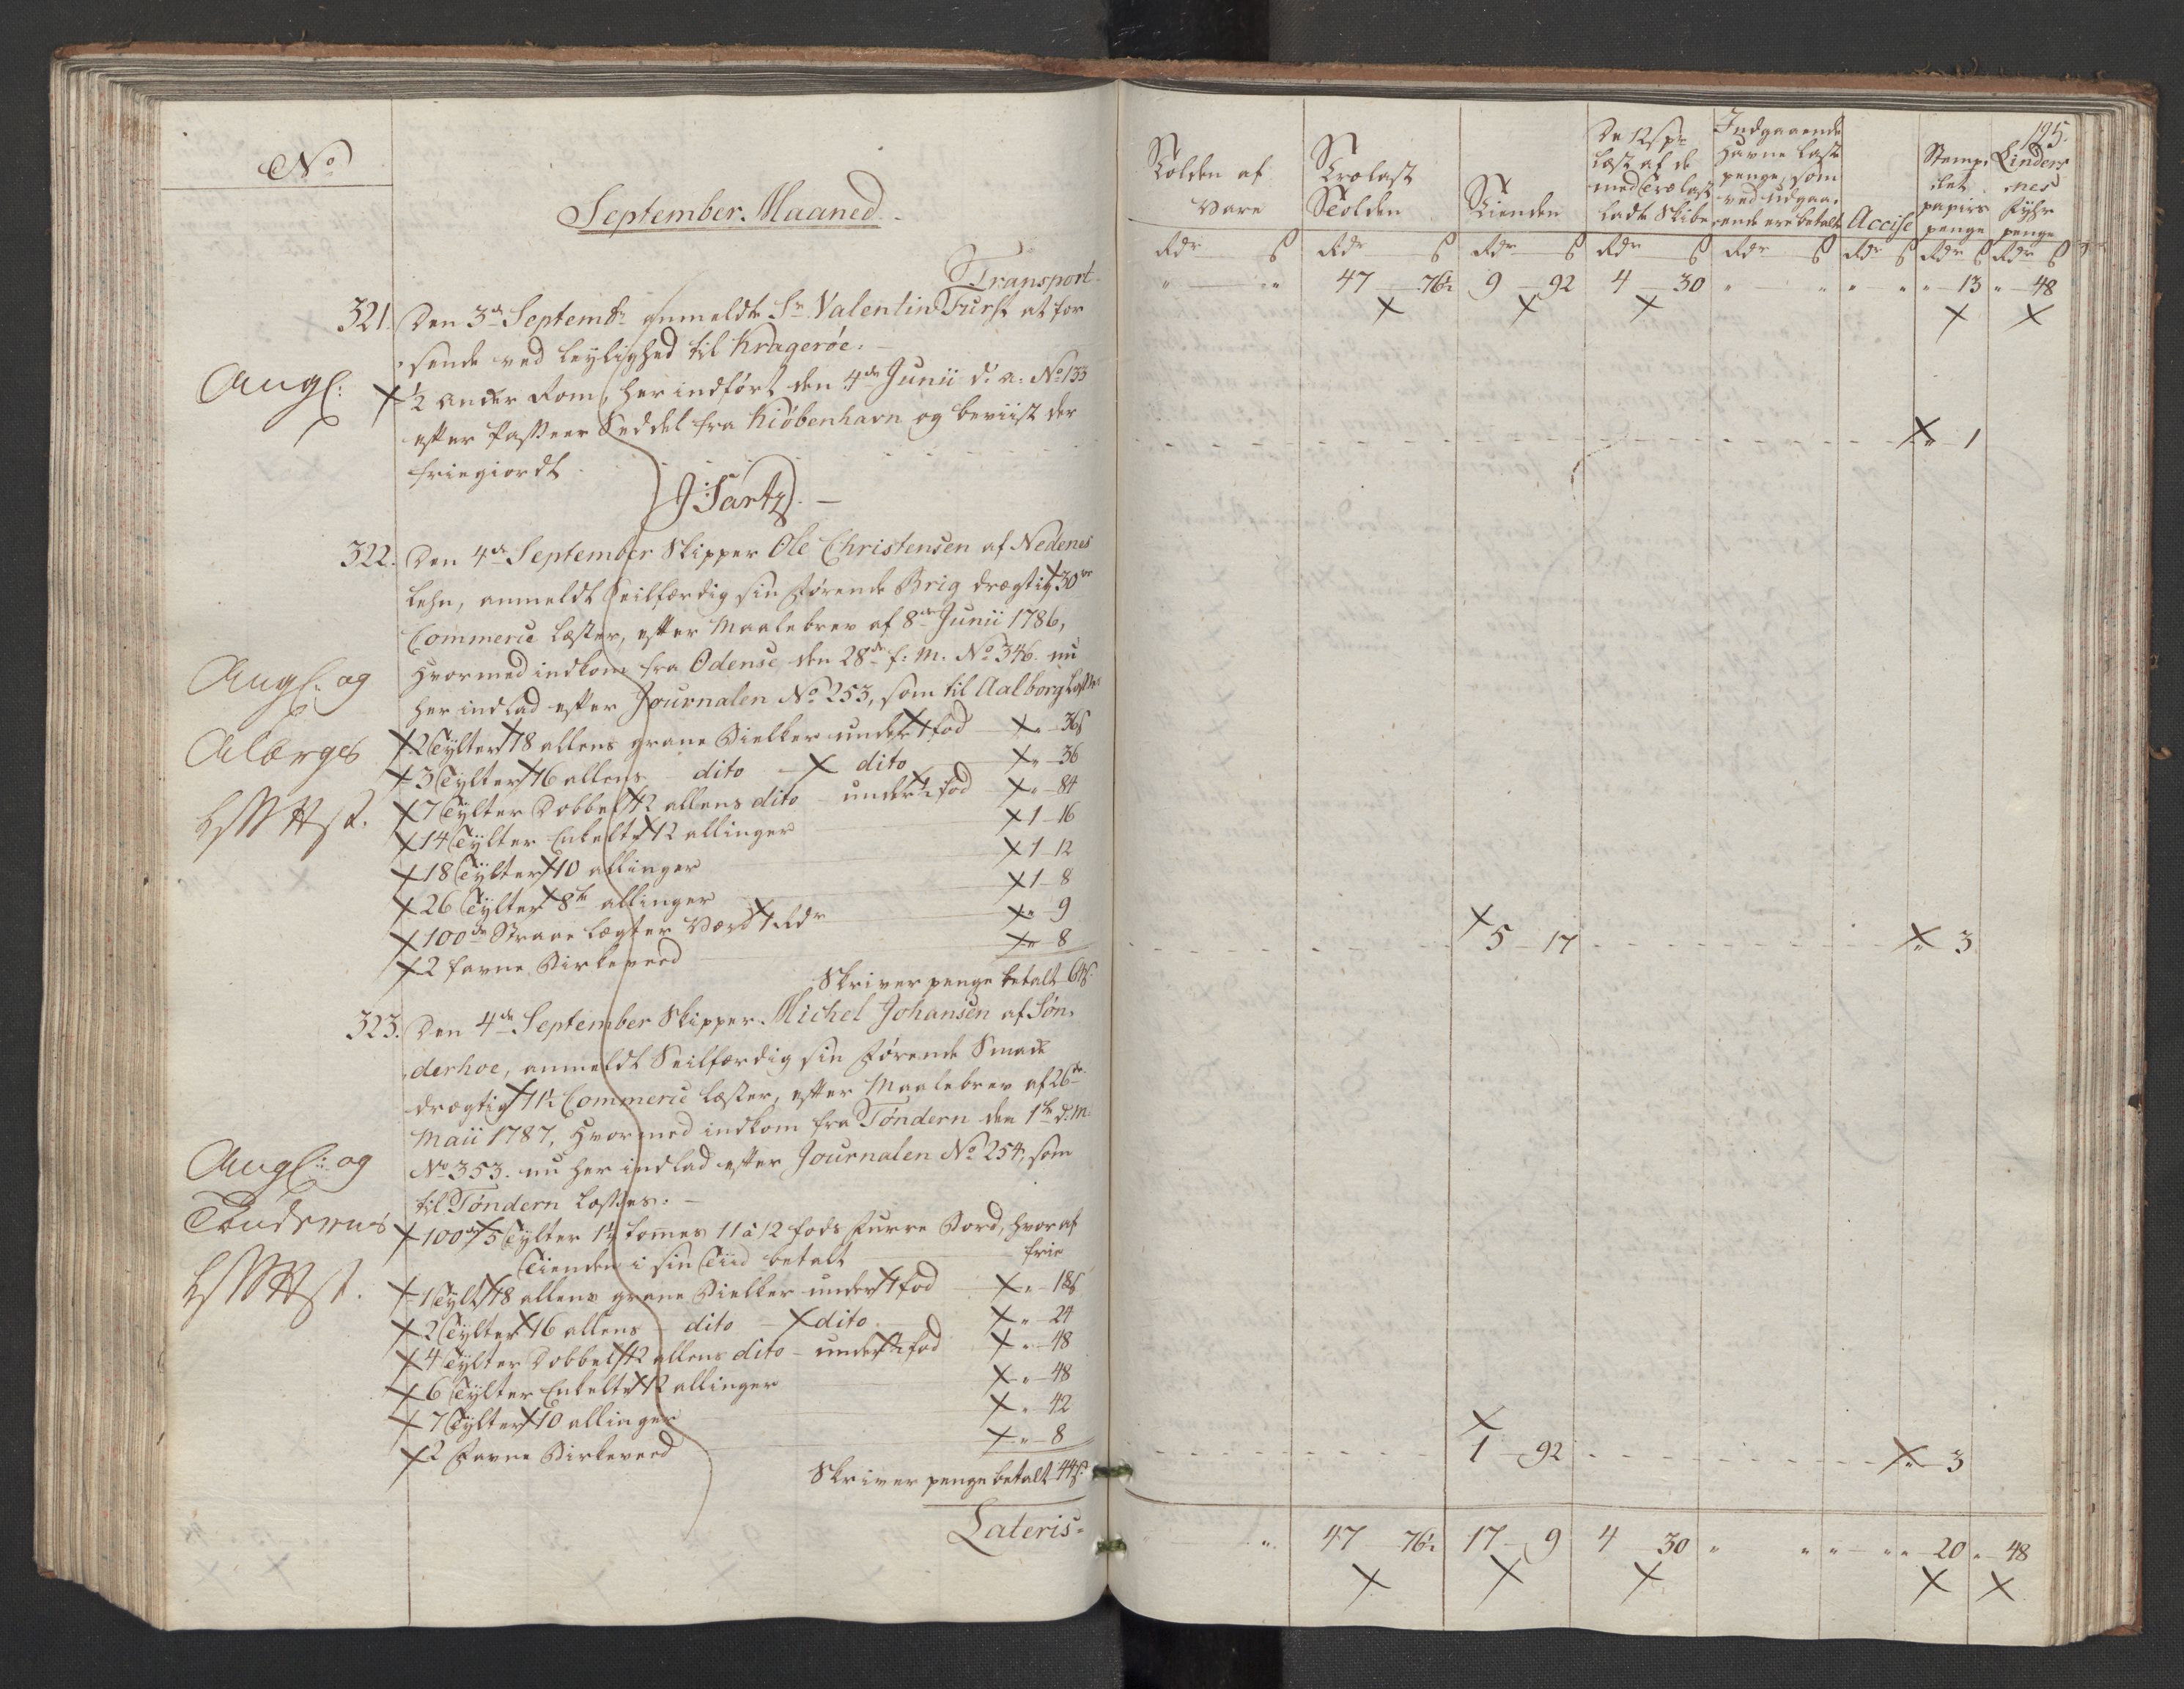 No
September Maaned.
Transport
321. Den 3de Septembr anmeldte Sr Valentin Furst at for
sende ved leylighed til Kragerøe.
Angl:
½ Ancker Rom, her indført den 4de Junii d: a: No 133
efter Passeer Seddel fra Kiøbenhavn og beviist der
friegiordt
322. Den 4de September Skipper Ole Christensen af Nedenes
Lehn, anmeldt Seilfærdig sin førende Brig drægtig 30ve
Commerce Læster, efter Maalebrev af 8de Junii 1786,
Hvormed indkom fra Odense den 28de f: M. No 346. nu
Angl: og
her indlad efter Journalen No 253, som til Aalborg
Alborgs
2 Tylter 18 allens grane Bielker under 1 fod " 36 ß
3 Tylter 16 allens dito dito " 36
7 Tylter Dobbelt 12 allens dito under ½ fod " 84
14 Tylter Enkelte 12 allinger 1 16
18 Tylter 10 allinger 1 12
26 Tylter 8te allinger 1 8
100de Straae Lægter Værd 1 Rdr " 9
2 favne Birkeveed " 8
Skriver penge betalt 64 ß
323. Den 4de September Skipper Michel Johansen af Søn
derhoe, anmeldt Seilfærdig sin førende Smack
drægtig 11½ Commerce Læster, efter Maalebrev af 26de
Maii 1787, Hvormed indkom fra Tøndern den 1te d: M:
Angl: og
No 353. nu her indlad efter Journalen No 254, som
til Tøndern Losses.
Tønderns
100de 5 Tylter 1¼ tommes 11 à 12 fods furre Bord, hvoraf
Tienden i sin Tiid betalt frie
1 Tylt 18 allens grane Bielker under 1 fod " 18 ß
2 Tylter 16 allens dito dito " 24
4 Tylter Dobbelt 12 allens dito under ½ fod " 48
6 Tylter Enkelte 12 allinger " 48
7 Tylter 10 allinger " 42
2 Favne Birkeveed " 8
Skriver penge betalt 44 ß
Lateris
195.
Tolden af
Vare
Trælast
Tolden
Tienden
De 12 ß pr
Læst af de
med Trælast
ladte Skibe
Indgaaende
Havne Laste
penge, som
ved udgaa
ende ere betalt
Accise
Stemp
let
papiirs
penge
Linders
nes
Fyhr
penge
Rdr ß Rdr ß Rdr ß Rdr ß Rdr ß Rdr ß Rdr ß Rdr ß
" " 47 76½ 9 92 4 30 " " " " " 13 " 48
" 1
5 17 " 3
1 92 " 3
" 47 76½ 17 9 4 30 " " " " " 20 " 48